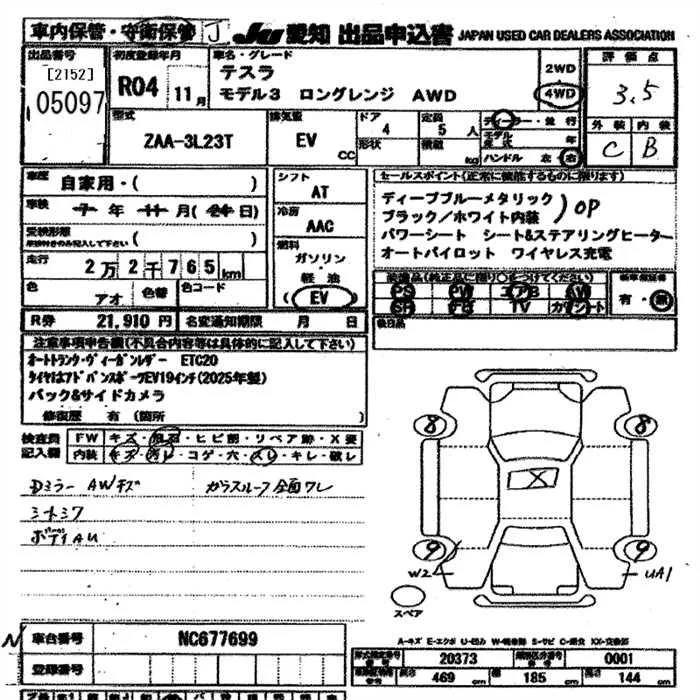 車内保管・守衛保管 J JU 愛知 出品申込書 JAPAN USED CAR DEALERS ASSOCIATION
出品番号 初度登録年月 車名・グレード 評価点
[2152] R04 11月 テスラ 2WD
05097 モデル3 ロングレンジ AWD 4WD 3.5
型式 排気量 ドア 定員 外装 内装
ZAA-3L23T EV CC 4 5人 C B
形状 積載 kg ハンドル 左・右
車歴 自家用・( ) シフト AT セールスポイント(正常に機能するものに限ります)
車検 7年 11月(24日) 冷房 AAC ディープブルーメタリック
ブラック/ホワイト内装 )OP
燃料 パワーシート シート&ステアリングヒーター
走行 2万2千765km ガソリン・軽油 オートパイロット ワイヤレス充電
色 アオ 色替 色コード (EV)
PS PW エアB AW 有・無
SR TV カワシート
R券 21,910円 名変通知期限 月 日 後日品
注意事項申告欄(不具合内容等は具体的に記入して下さい)
オートトランク・ヴィーガンレザー ETC20
タイヤはアドバンスポーツEV19インチ(2025年製)
バック&サイドカメラ
修復歴 有(箇所 )
検査員 FW キズ・飛石・ヒビ割・リペア跡・X要
記入欄 内装 キズ・汚レ・コゲ・穴・スレ・キレ・破レ
Dミラー AWキズ ガラスルーフ全面ワレ
シートシワ
ボディAU
8 8
X
9 9
W2 UA1
スペア
A-キズ E-エクボ U-凹み W-補修跡 S-サビ C-腐食 XX-交換跡
N 車台番号 NC677699
型式指定番号 20373 類別区分番号 0001
登録番号 長さ 469 cm 幅 185 cm 高さ 144 cm